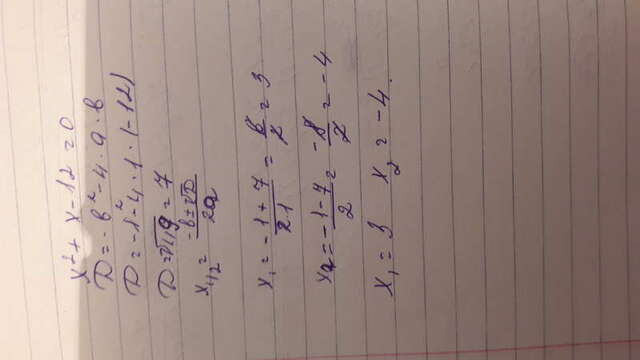 x² + x - 12 = 0
D = -b² - 4 · a · b
D = -1² - 4 · 1 · (-12)
D = √49 = 7
x₁,₂ = -b ± √D / 2a
x₁ = -1 + 7 / 21 = 6 / 2 = 3
x₂ = -1 - 7 / 2 = -8 / 2 = -4
x₁ = 3 x₂ = -4.